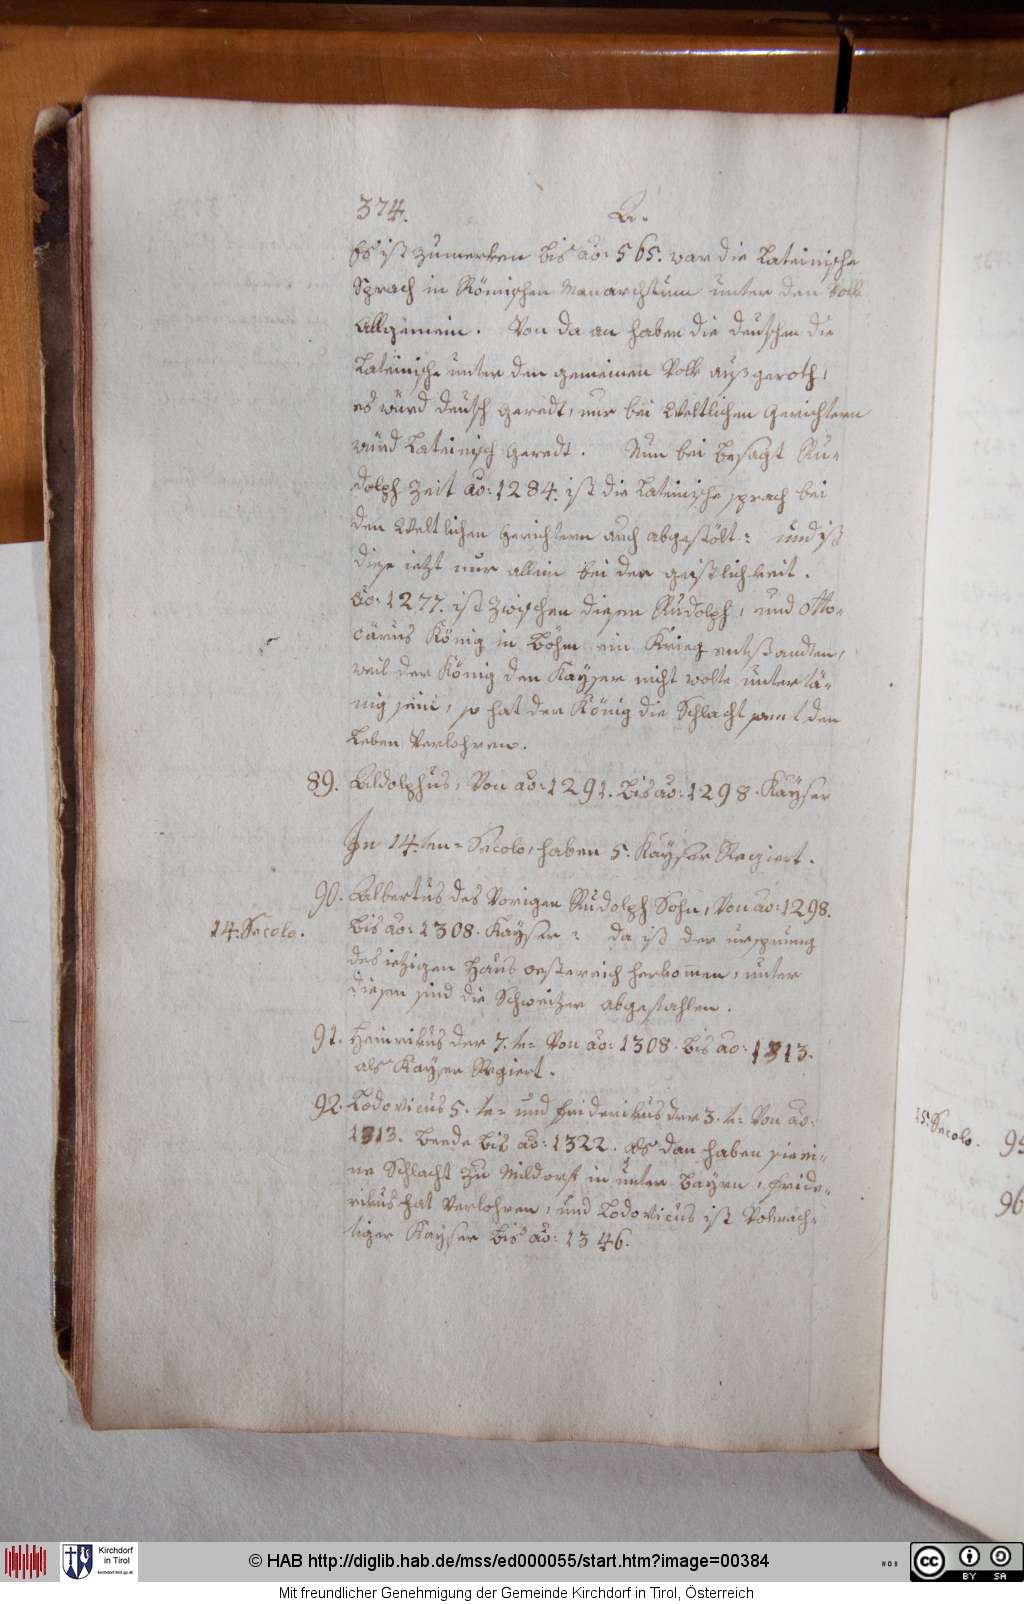 374.
Es ist zumerken bis ao: 565. war die Lateinische
Sprach in Römischen Monarchtum unter den Volk
Allgemein. Von da an haben die deutschen die
Lateinische unter den gemeinen Volk außgeroth,
es würd deutsch geredt, nur bei Weltlichen Gerichtern
würd Lateinisch geredt. Nun bei besagt Ru-
dolph Zeit ao: 1284. ist die Lateinische sprach bei
den Weltlichen Gerichtern auch abgestölt: und ist
diese ietzt nur allein bei der geistlichkeit.
ao: 1277. ist Zwischen diesen Rudolph, und Otto-
carus König in Böhm ein Krieg entstandten,
weil der König den Kayser nicht wolte untertä-
nig sein, so hat der König die Schlacht samt den
Leben Verlohren.
89. Aldolphus, Von ao: 1291. bis ao: 1298. Kayser
In 14.ten Secolo, haben 5. Kayser Regiert.
90. Albertus des Vorigen Rudolph Sohn, Von ao: 1298.
14. Secolo.
bis ao: 1308. Kayser: da ist der ursprung
des ietzigen Haus oesterreich herkommen, unter
diesen sind die Schweitzer abgefahlen.
91. Heinrikus der 7.te Von ao: 1308. bis ao: 1313.
als Kayser Regiert.
92. Lodovicus 5.te und Friderikus der 3.te Von ao:
1313. Beede bis ao: 1322. als dan haben sie ei-
ne Schlacht zu Mildorf in unter Bayrn, Fride-
rikus hat Verlohren, und Lodovicus ist Volmäch-
tiger Kayser bis ao: 1346.
15. Secolo.
96
© HAB http://diglib.hab.de/mss/ed000055/start.htm?image=00384
Kirchdorf
in Tirol
BY SA
Mit freundlicher Genehmigung der Gemeinde Kirchdorf in Tirol, Österreich